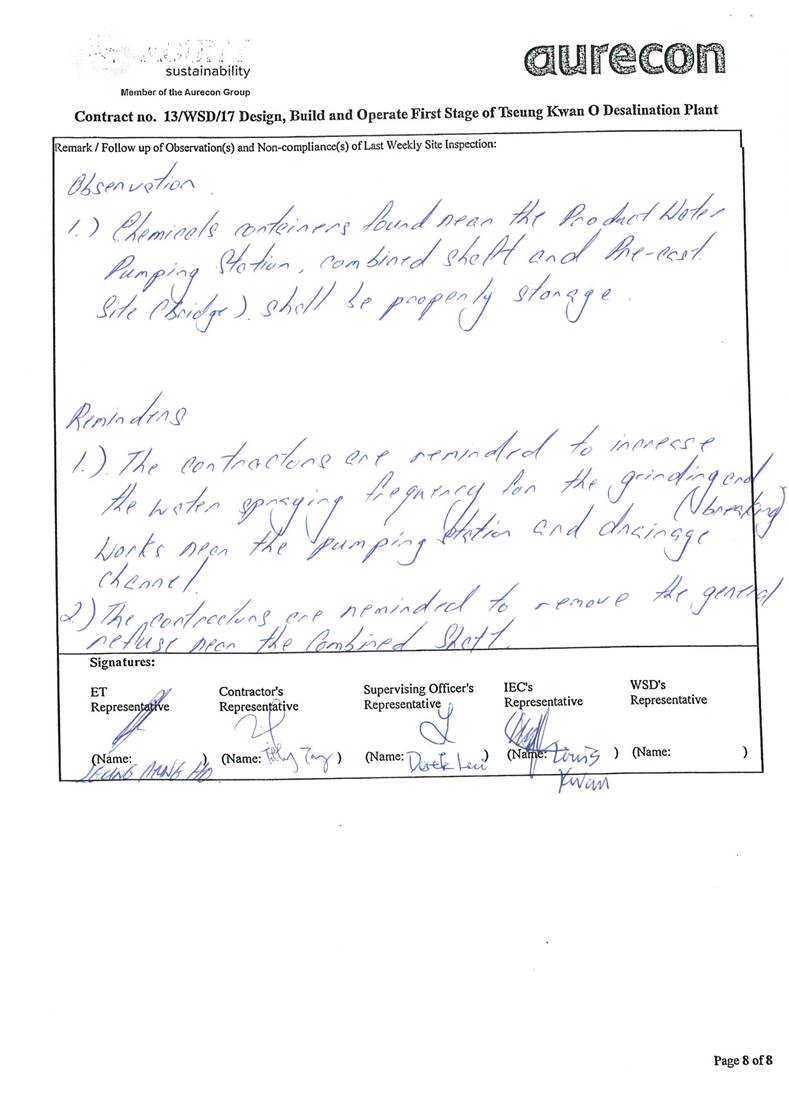 sustainability
aurecon
Member of the Aurecon Group
Contract no. 13/WSD/17 Design, Build and Operate First Stage of Tseung Kwan O Desalination Plant
Remark / Follow up of Observation(s) and Non-compliance(s) of Last Weekly Site Inspection:
Observation
1.) Chemicals containers found near the Product Water
Pumping Station, combined shaft and Pre-cast
Site (bridge) shall be properly storage.
Reminders
1.) The contractors are reminded to increase
the water spraying frequency for the grinding and
(breaking)
works near the pumping station and drainage
channel.
2.) The contractors are reminded to remove the general
refuse near the Combined Shaft.
Signatures:
ET Contractor's Supervising Officer's IEC's WSD's
Representative Representative Representative Representative Representative
(Name: ) (Name: ) (Name: Derek Lui ) (Name: Louis ) (Name: )
Kwan
Page 8 of 8